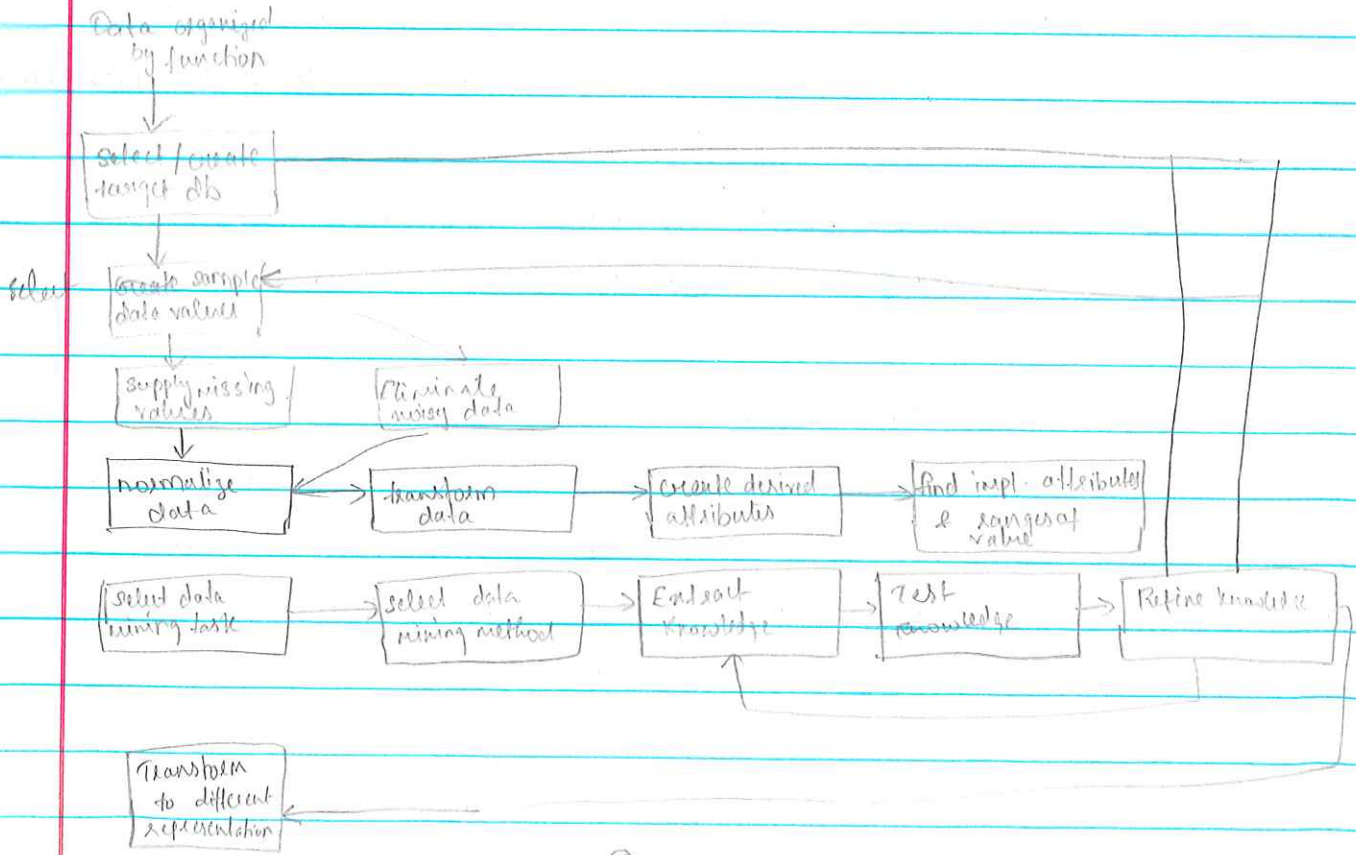 Data organized
by function
select/create
target db
select
create sample
data values
supply missing
values
Eliminate
noisy data
normalize
data
transform
data
create desired
attributes
find impl. attributes
& ranges of
value
select data
mining task
select data
mining method
Extract
knowledge
Test
knowledge
Refine knowledge
Transform
to different
representation